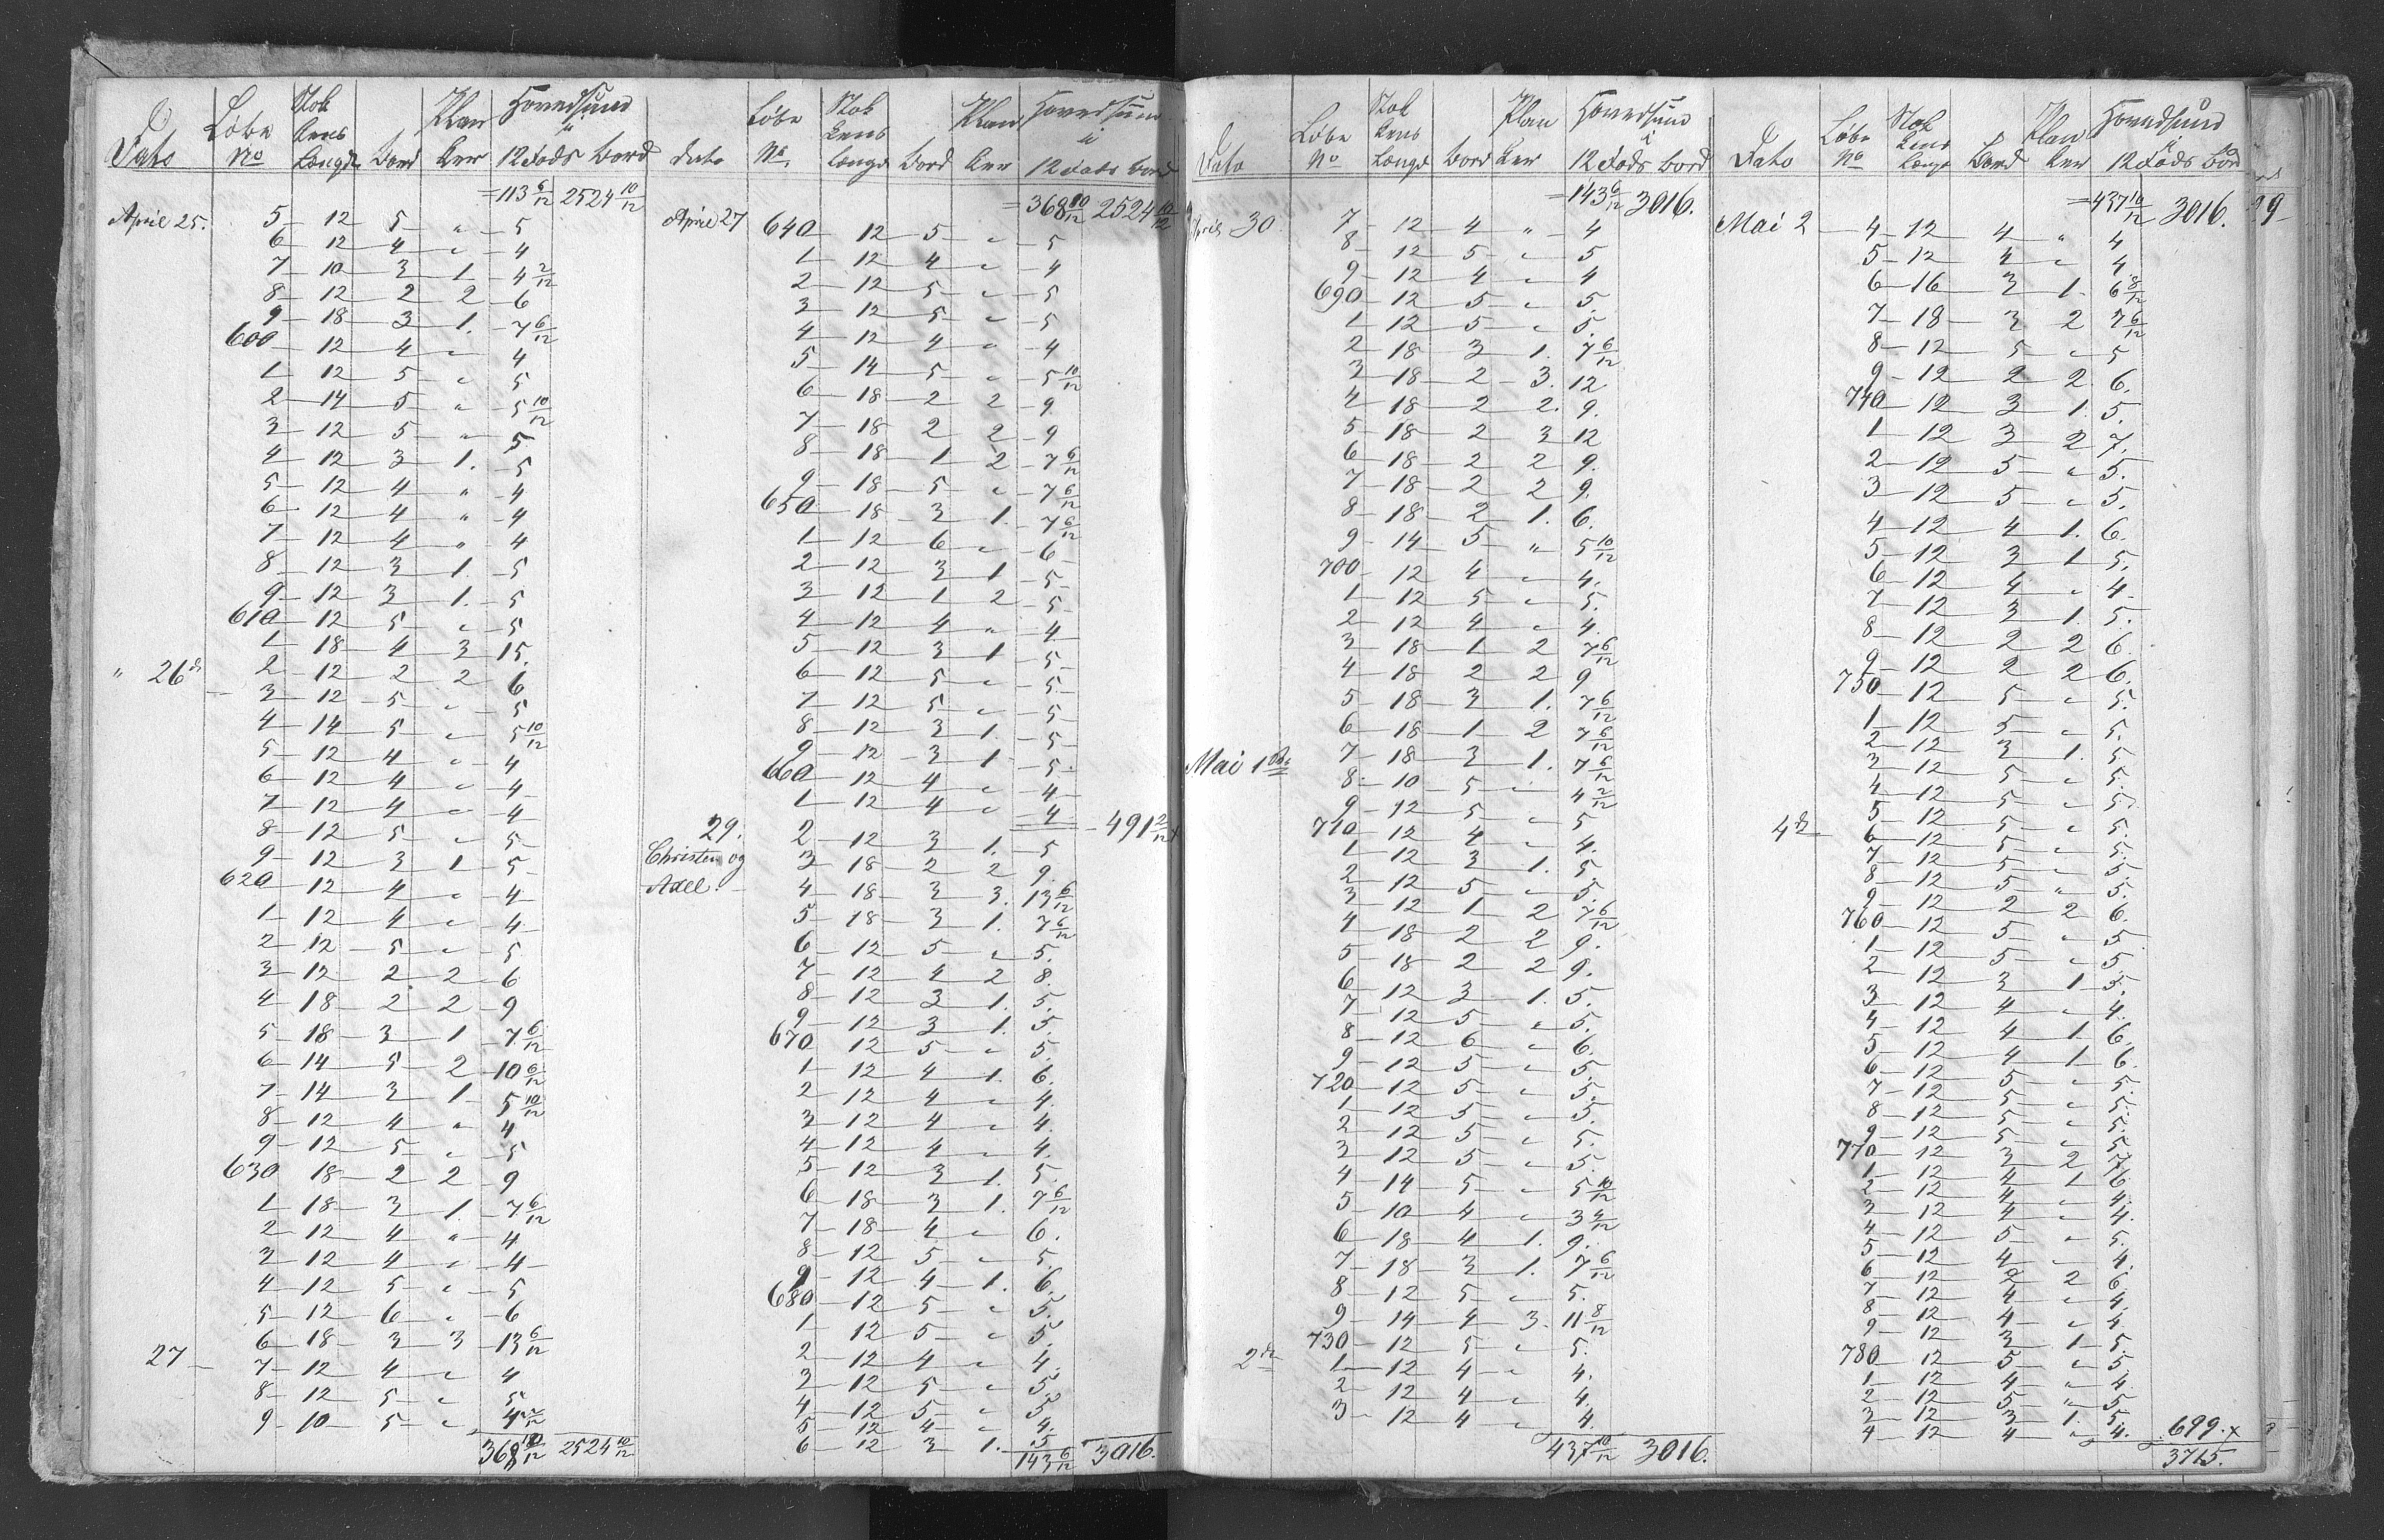 Dato Løbe No Stok kens Længde Bord Plan ker Hovedsum i 12 Fods Bord
=113 6/12 2524 10/12
April 25. 5 12 5 " 5
6 12 4 " 4
7 10 3 1 4 2/12
8 12 2 2 6
9 18 3 1. 7 6/12
600 12 4 " 4
1 12 5 " 5
2 14 5 " 5 10/12
3 12 5 " 5
4 12 3 1. 5
5 12 4 " 4
6 12 4 " 4
7 12 4 " 4
8 12 3 1. 5
9 12 3 1. 5
610 12 5 " 5
1 18 4 3 15.
" 26 d 2 12 2 2 6
3 12 5 " 5
4 14 5 " 5 10/12
5 12 4 " 4
6 12 4 " 4
7 12 4 " 4
8 12 5 " 5
9 12 3 1 5
620 12 4 " 4
1 12 4 " 4
2 12 5 " 5
3 12 2 2 6
4 18 2 2 9
5 18 3 1 7 6/12
6 14 5 2 10 6/12
7 14 3 1 5 10/12
8 12 4 " 4
9 12 5 " 5
630 18 2 2 9
1 18 3 1. 7 6/12
2 12 4 " 4
3 12 4 " 4
4 12 5 " 5
5 12 6 " 6
6 18 3 3 13 6/12
27 7 12 4 " 4
8 12 5 " 5
9 10 5 " 4 2/12
368 10/12 2524 10/12
Dato Løbe No. Stok kens Længde Bord Plan ker Hovedsum i 12 Fods Bord
=368 10/12 2524 10/12
April 27 640 12 5 " 5
1 12 4 " 4
2 12 5 " 5
3 12 5 " 5
4 12 4 " 4
5 14 5 " 5 10/12
6 18 2 2 9
7 18 2 2 9
8 18 1 2 7 6/12
9 18 5 " 7 6/12
650 18 3 1. 7 6/12
1 12 6 " 6
2 12 3 1 5
3 12 1 2 5
4 12 4 " 4
5 12 3 1 5
6 12 5 " 5
7 12 5 " 5
8 12 3 1. 5
9 12 3 1 5
660 12 4 " 4
1 12 4 " 4 491 2/12 x
29. 2 12 3 1. 5
Christen og 3 18 2 2 9.
Axel. 4 18 3 3. 13 6/12
5 18 3 1. 7 6/12
6 12 5 " 5.
7 12 4 2 8.
8 12 3 1. 5.
9 12 3 1. 5.
670 12 5 " 5.
1 12 4 1. 6.
2 12 4 " 4.
3 12 4 " 4.
4 12 4 " 4.
5 12 3 1. 5.
6 18 3 1. 7 6/12
7 18 4 " 6.
8 12 5 " 5.
9 12 4 1. 6.
680 12 5 " 5.
1 12 5 " 5.
2 12 4 " 4.
3 12 5 " 5
4 12 5 " 5
5 12 4 " 4.
6 12 3 1. 5
143 6/12 3016.
Dato Løbe No Stok kens Længde Bord Plan ker Hovedsum i 12 Fods Bord
=143 6/12 3016.
April 30 7 12 4 " 4
8 12 5 " 5
9 12 4 " 4
690 12 5 " 5.
1 12 5 " 5.
2 18 3 1. 7 6/12
3 18 2 3. 12
4 18 2 2. 9.
5 18 2 3 12
6 18 2 2 9.
7 18 2 2 9.
8 18 2 1. 6.
9 14 5 " 5 10/12
700 12 4 " 4.
1 12 5 " 5.
2 12 4 " 4.
3 18 1 2 7 6/12
4 18 2 2 9
5 18 3 1. 7 6/12
6 18 1 2 7 6/12
Mai 1 7 18 3 1. 7 6/12
8 10 5 " 4 2/12
9 12 5 " 5
710 12 4 " 4.
1 12 3 1. 5.
2 12 5 " 5.
3 12 1 2 7 6/12
4 18 2 2 9.
5 18 2 2 9.
6 12 3 1. 5.
7 12 5 " 5.
8 12 6 " 6.
9 12 5 " 5
720 12 5 " 5.
1 12 5 " 5.
2 12 5 " 5.
3 12 5 " 5.
4 14 5 " 5 10/12
5 10 4 " 3 4/12
6 18 4 1. 9.
7 18 3 1. 7 6/12
8 12 5 " 5.
9 14 4 3. 11 8/12
730 12 5 " 5.
2 d 1 12 4 " 4.
2 12 4 " 4.
3 12 4 " 4.
437 10/12 3016.
Dato Løbe No Stok kens Længe Bord Plan ker Hovedsum i 12 Fods Bord
=437 10/12 3016.
Mai 2 4 12 4 " 4
5 12 4 " 4
6 16 3 1. 6 8/12
7 18 3 2 7 6/12
8 12 5 " 5
9 12 2 2. 6.
740 12 3 1. 5.
1 12 3 2 7.
2 12 5 " 5.
3 12 5 " 5.
4 12 4 1. 6.
5 12 3 1 5.
6 12 4 " 4.
7 12 3 1. 5.
8 12 2 2 6.
9 12 2 2 6.
750 12 5 " 5.
1 12 5 " 5.
2 12 3 1. 5
3 12 5 " 5.
4 12 5 " 5.
5 12 5 " 5.
4 d 6 12 5 " 5.
7 12 5 " 5.
8 12 5 " 5.
9 12 2 2 6.
760 12 5 " 5
1 12 5 " 5
2 12 3 1 5.
3 12 4 " 4.
4 12 4 1. 6.
5 12 4 1 6.
6 12 5 " 5.
7 12 5 " 5.
8 12 5 " 5.
9 12 5 " 5
770 12 3 2 7.
1 12 4 1 6.
2 12 4 " 4.
3 12 4 " 4.
4 12 5 " 5.
5 12 4 " 4.
6 12 2 2 6.
7 12 4 " 4.
8 12 4 " 4.
9 12 3 1 5.
780 12 5 " 5
1 12 4 " 4
2 12 5 " 5
3 12 3 1. 5.
4 12 4 " 4. 699. x
3715.